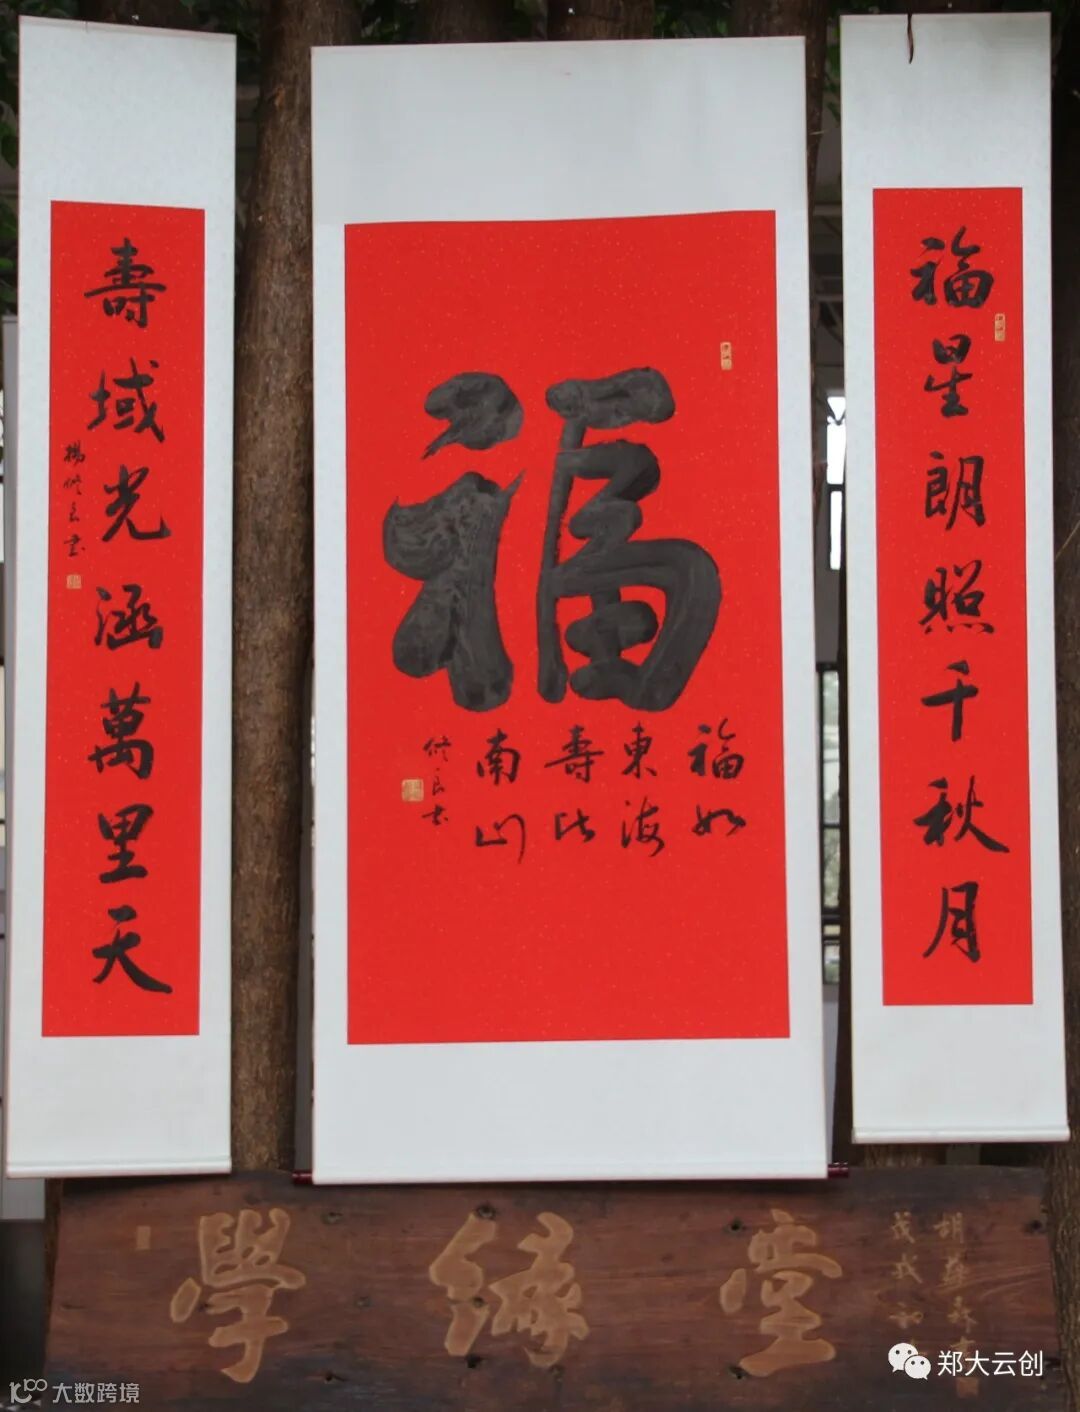 福星朗照千秋月
福
福如
東海
壽比
南山
修良書
壽域光涵萬里天
楊修良書
學緣堂
郑大云创
大数跨境